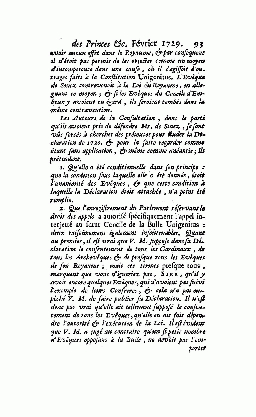 des Princes &c. Février 1729. 93
aucun effet dans le Royaume, & par consequent
il n'étoit pas permis de les objecter comme un moyen
d'incompetence dans une cause, où il s'agissoit d'ou-
trages faits à la Constitution Unigenitus. L'Evêque
de Senez contrevenoit à la Loi du Royaume, en alle-
guant ce moyen; & si les Evêques du Concile d'Em-
brun y avoient eu égard, ils seroient tombez dans la
même contravention.
Les Auteurs de la Consultation, dans le parti
qu'ils avoient pris de défendre Mr. de Senez, se sont
vûs forcés à chercher des prétextes pour éluder la Dé-
claration de 1720. & pour la faire regarder comme
étant sans application, & même comme caduque; Ils
prétendent.
1. Qu'elle a été conditionnelle dans son principe:
que la condition sous laquelle elle a été donnée, étoit
l'unanimité des Evêques, & que cette condition à
laquelle la Déclaration étoit attachée, n'a point été
remplie.
2. Que l'enregistrement du Parlement réservant le
droit des appels a autorisé spécifiquement l'appel in-
terjetté au futur Concile de la Bulle Unigenitus:
deux raisonnemens également insoutenables. Quant
au premier, il est vrai que V. M. suppose dans sa Dé-
claration le consentement de tous les Cardinaux, de
tous les Archevêques & de presque tous les Evêques
de son Royaume; mais ces termes presque tous,
marquent que vous n'ignoriez pas, SIRE, qu'il y
avoit encore quelques Evêques, qui n'avoient pas suivi
l'exemple de leurs Confreres, & cela n'a pas em-
pêché V. M. de faire publier sa Déclaration. Il n'est
donc pas vrai qu'elle ait tellement supposé le consen-
tement de tous les Evêques, qu'elle en ait fait dépen-
dre l'autorité & l'exécution de la Loi. Il est évident
que V. M. a jugé au contraire qu'un si petit nombre
d'Evêques opposans à la Bulle, ne devoit par l'em-
porter